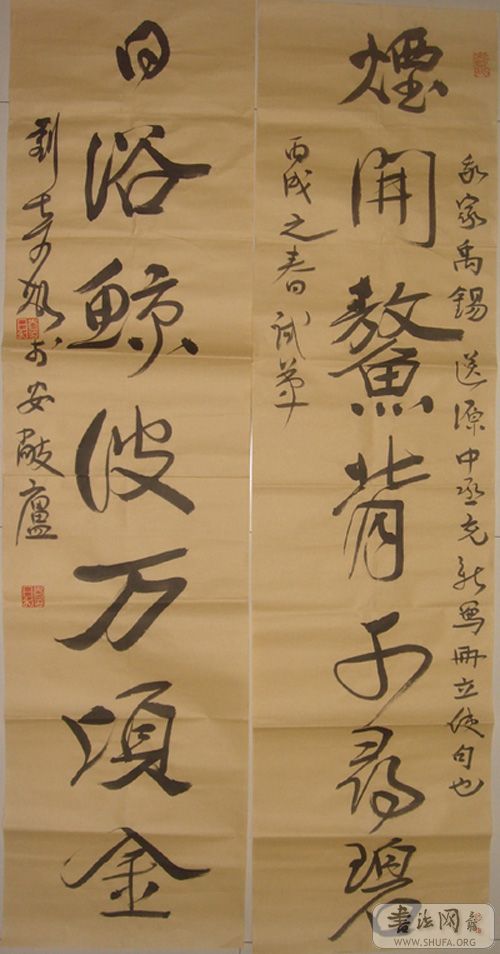 家禹錫 送源中丞充新羅冊立使句也
煙開鰲背千尋碧
丙戌之春試筆
日浴鯨波万頃金
劉 於安 廬
書法网
WWW.SHUFA.ORG